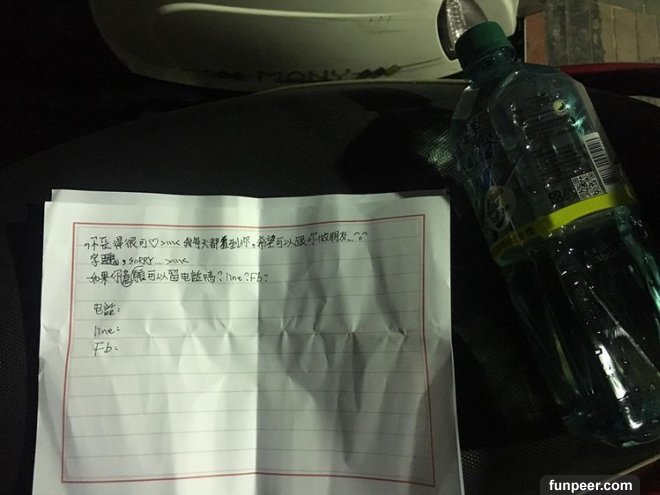 MANY
你長得很可♡>///< 我每天都看到你,希望可以跟你做朋友..^_^
字醜,SORRY....>///<
如果你意願可以留電話嗎?line?Fb?
電話:
line:
Fb:
funpeer.com